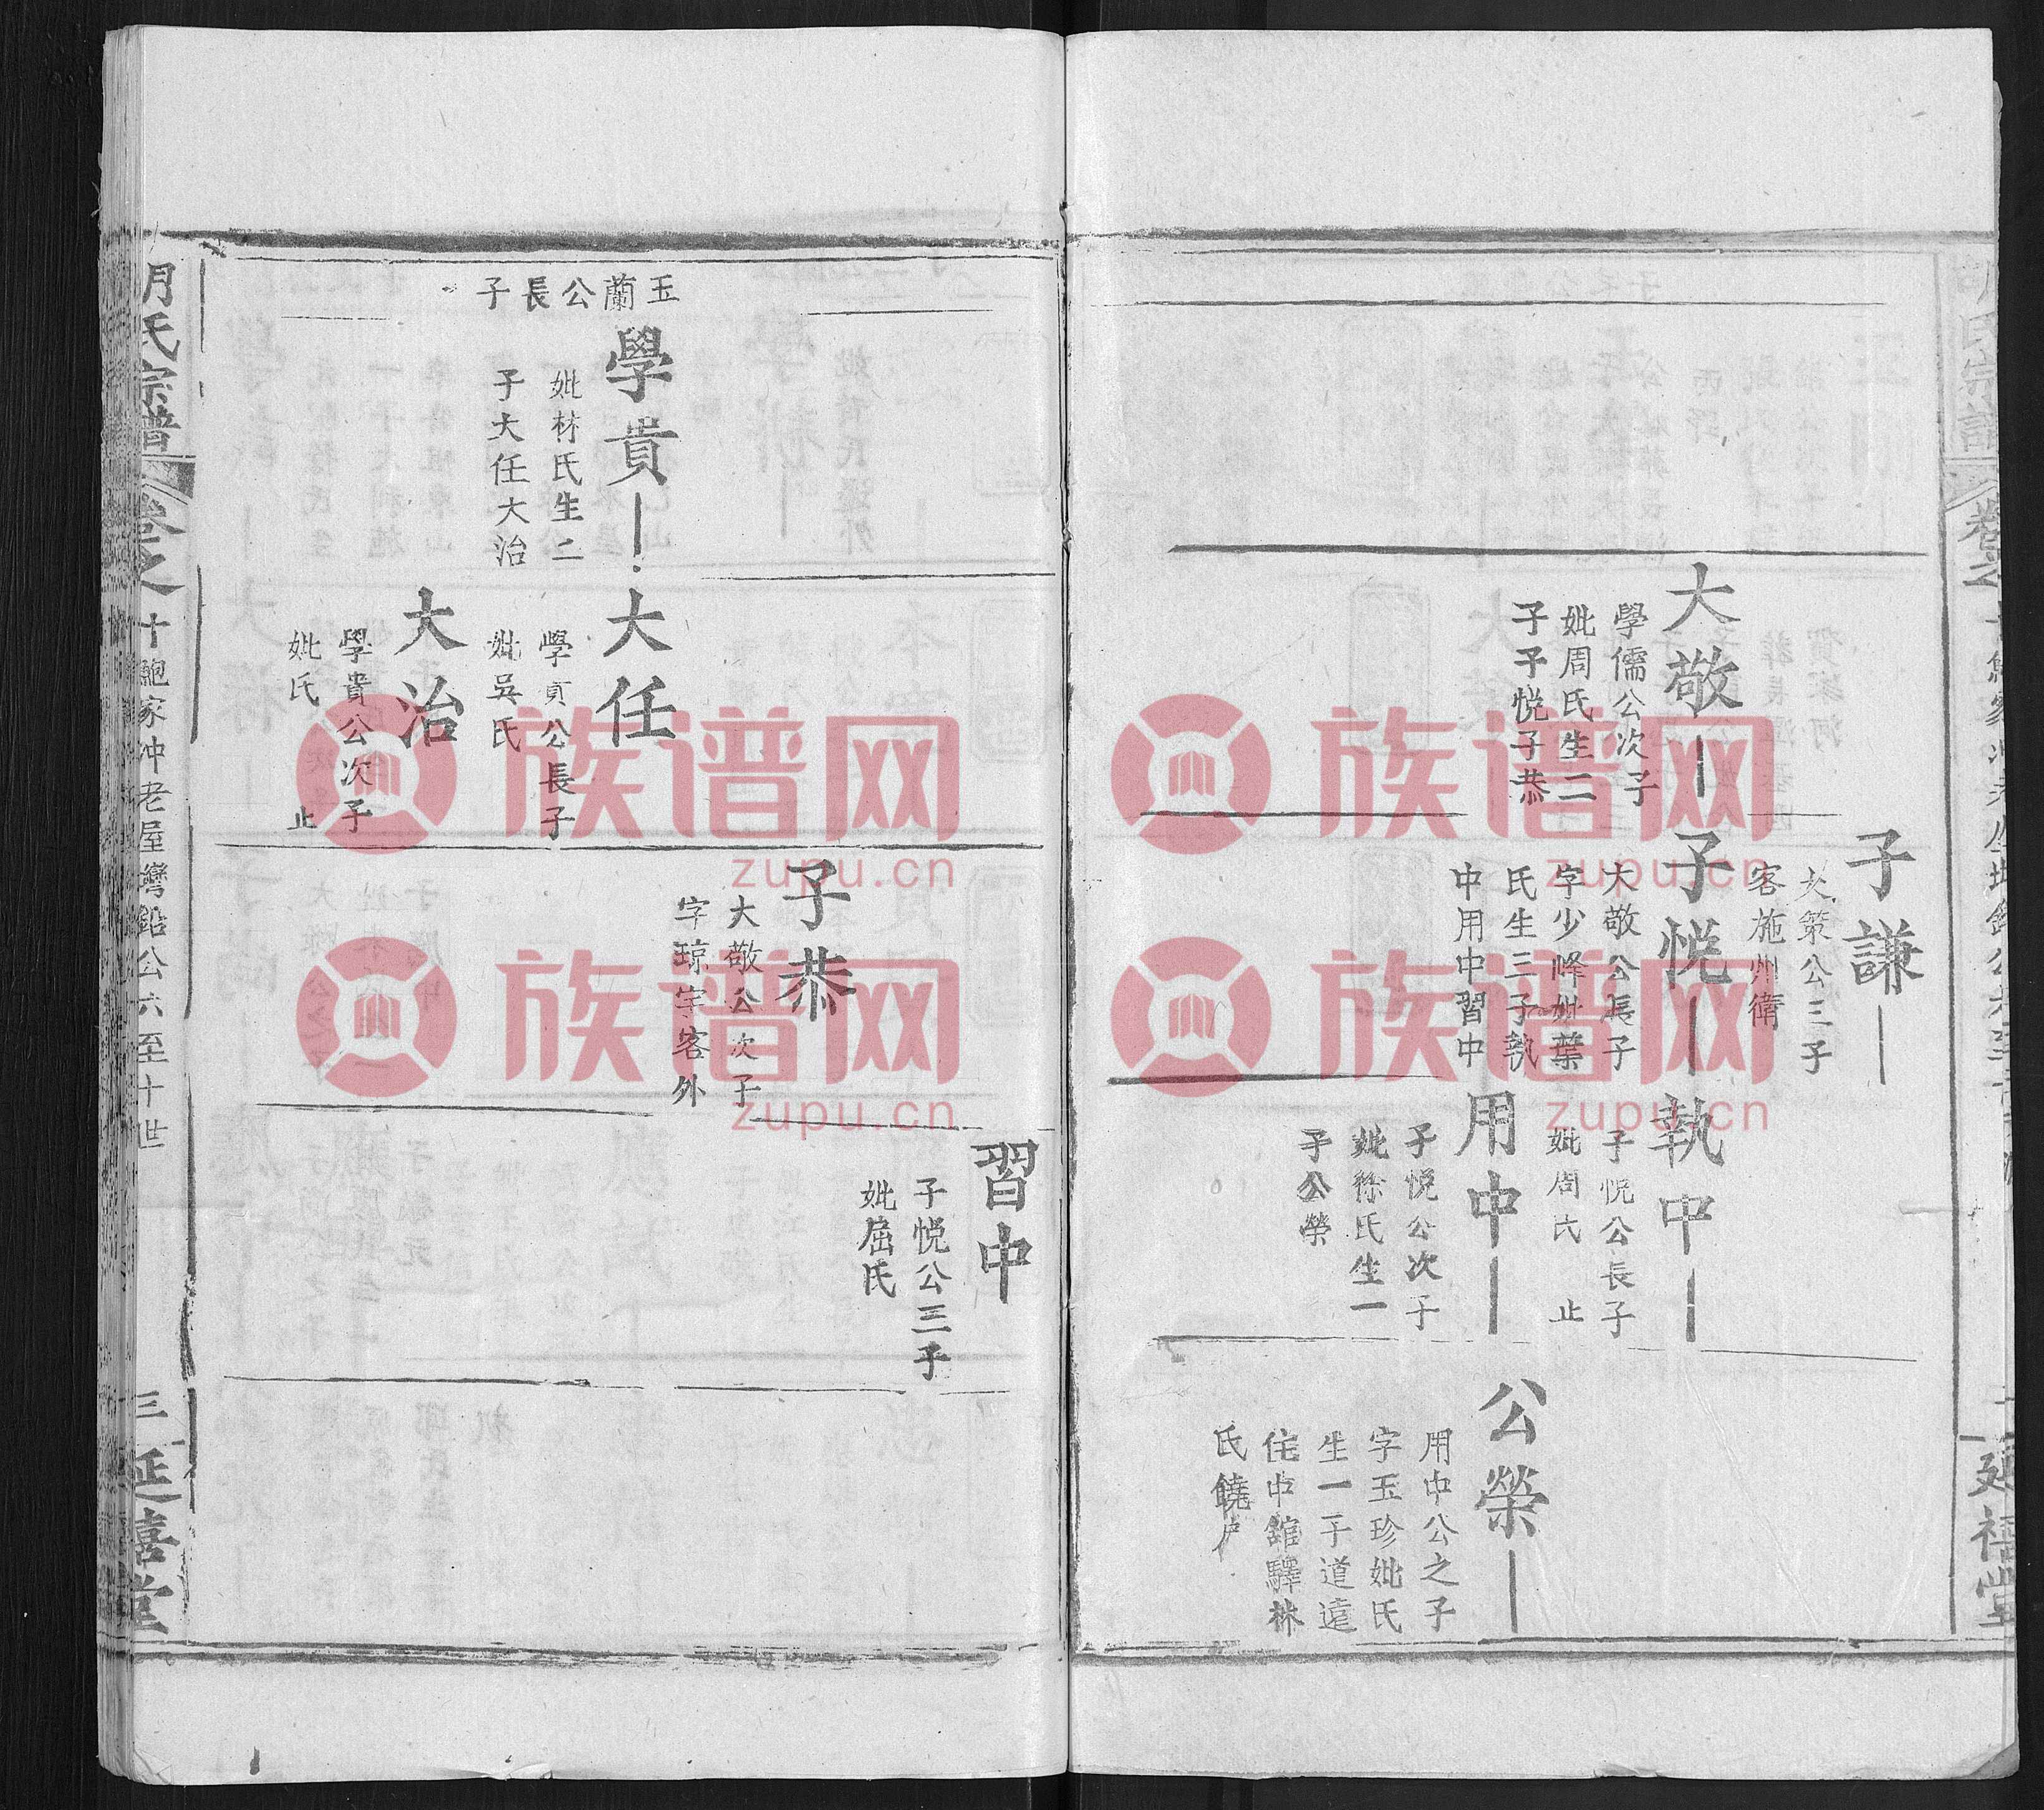 子謙
大策公三子
客施州衛
大敬
學儒公次子
妣周氏生二
子子悦子恭
子悦
大敬公長子
字少峰妣葉
氏生三子執
中用中習中
執中
子悦公長子
妣周氏 止
用中
子悦公次子
妣徐氏生一
子公榮
公榮
用中公之子
字玉珍妣氏
生一子道遠
住中舘驛林
氏饒戶
延禧堂
習中
子悦公三子
妣屈氏
子恭
大敬公次子
字琼宇客外
玉蘭公長子
學貴
妣林氏生二
子大任大治
大任
學貢公長子
妣吳氏
大治
學貴公次子
妣氏 止
氏宗譜 卷之十 鮑家冲老屋灣鉛公六至十世 三 延禧堂
族谱网
zupu.cn
族谱网
zupu.cn
族谱网
zupu.cn
族谱网
zupu.cn